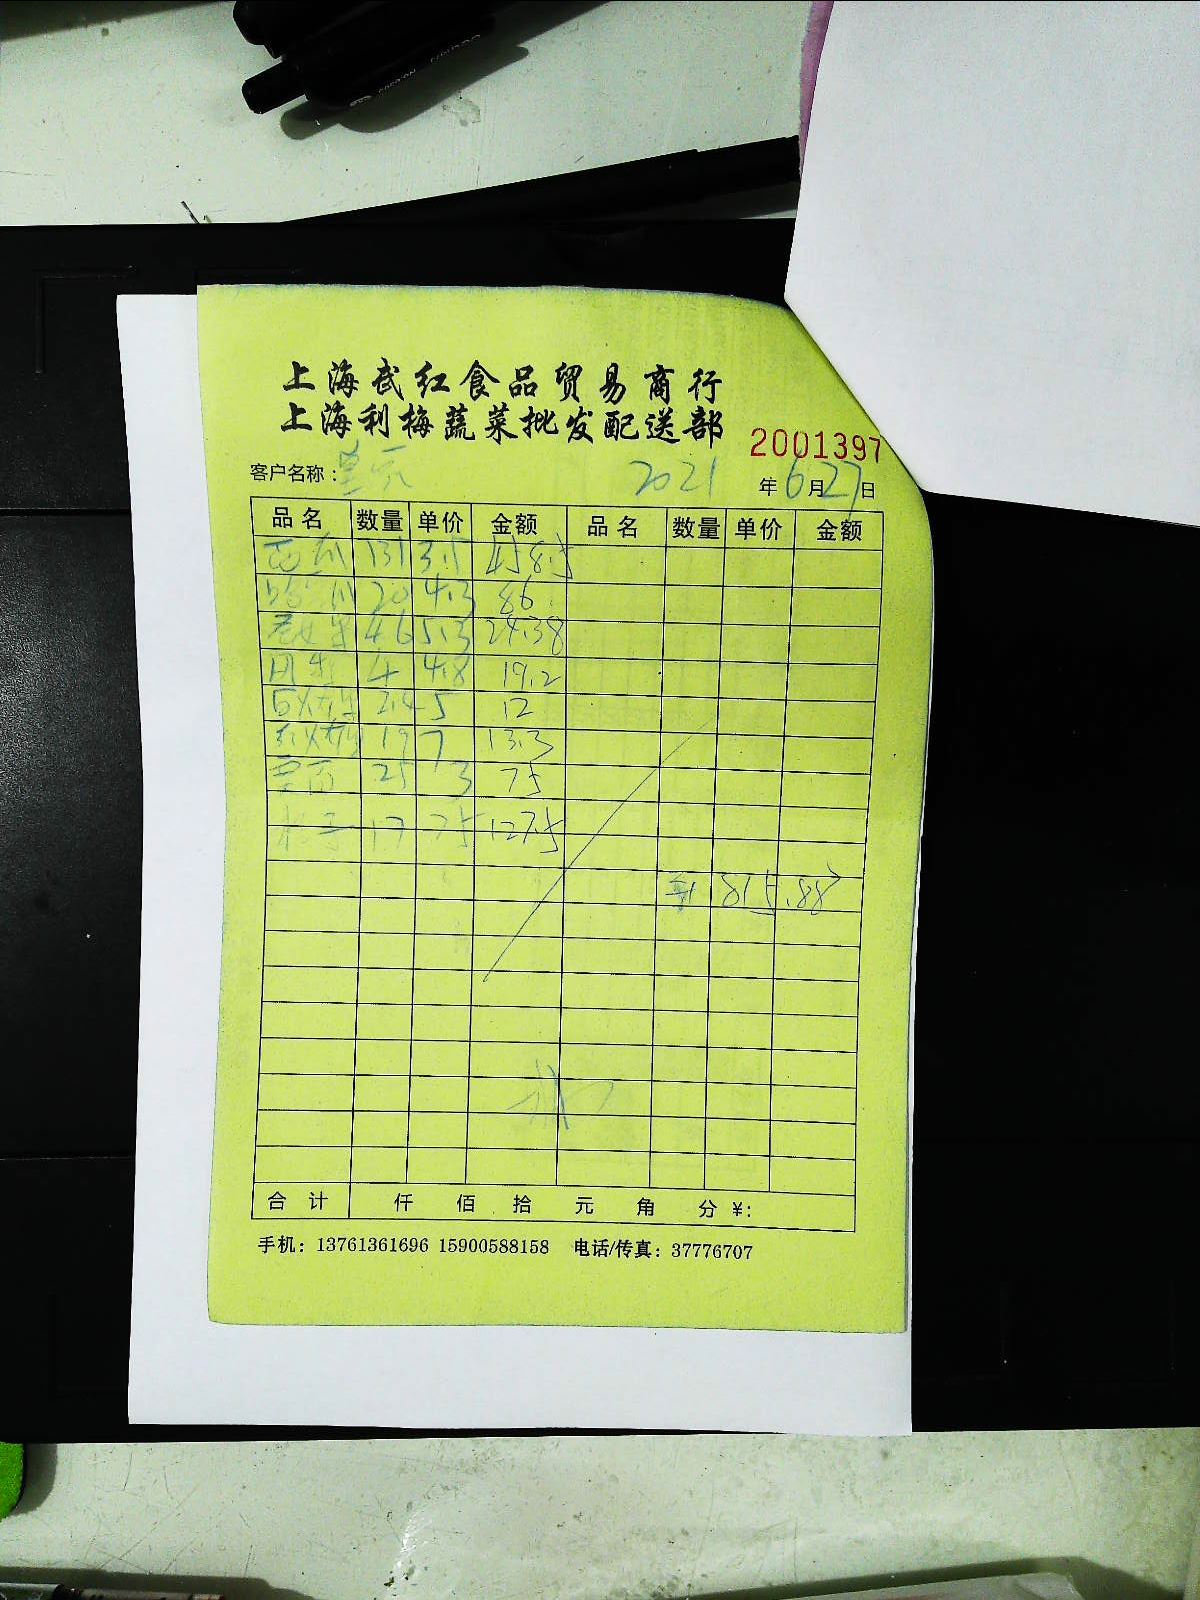 上海武红食品贸易商行
上海利梅蔬菜批发配送部
2001397
客户名称: 2021 年 6 月 27 日
品名 数量 单价 金额 品名 数量 单价 金额
西瓜 131 3.5 458.5
哈瓜 20 4.3 86
老女果 4.6 5.3 24.38
4 4.8 19.2
白火龙果 2.4 5 12
红火龙果 1.9 7 13.3
25 3 75
17 7.5 127.5
815.88
合计 仟 佰 拾 元 角 分 ¥:
手机: 13761361696 15900588158 电话/传真: 37776707